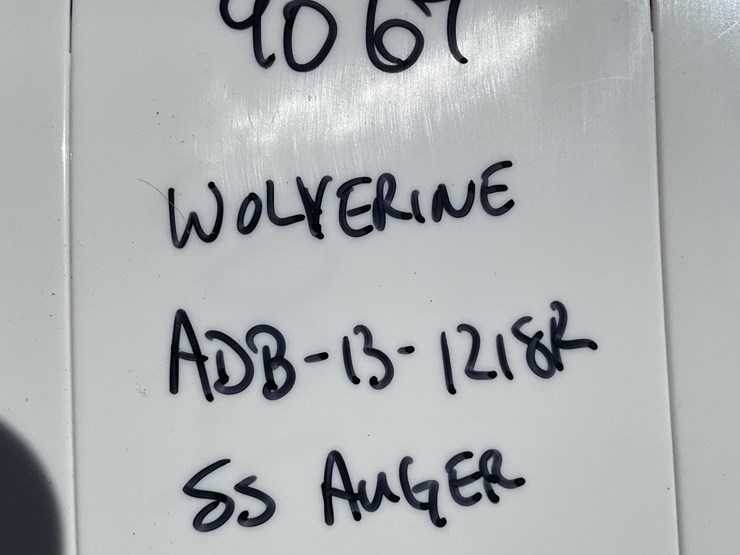 9067
WOLVERINE
ADB-13-1218R
SS AUGER